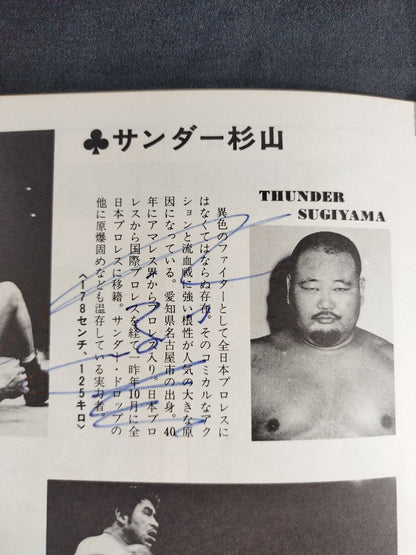 ♣サンダー杉山
THUNDER
SUGIYAMA
異色のファイターとして全日本プロレスに
はなくてはならぬ存在。そのコミカルなアク
ションと流血戦に強い根性が人気の大きな原
因になっている。愛知県名古屋市の出身。40
年にアマレス界からプロレス入り。日本プロ
レスから国際プロレスを経て一昨年10月に全
日本プロレスに移籍。サンダー・ドロップの
他に原爆固めなども温存している実力者。
〈178センチ、125キロ〉